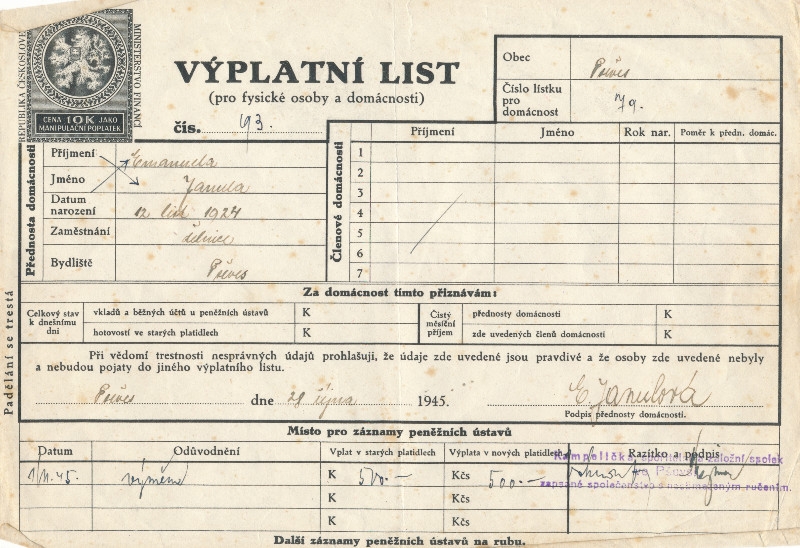 REPUBLIKA ČESKOSLOVE
MINISTERSTVO FINANCÍ
CENA 10K JAKO
MANIPULAČNÍ POPLATEK
VÝPLATNÍ LIST
(pro fysické osoby a domácnosti)
čís. 493.
Obec
Číslo lístku
pro
domácnost
79.
Přednosta domácnosti
Příjmení Emanuela
Jméno Janula
Datum
narození 12 list 1924
Zaměstnání dělnice
Bydliště
Členové domácnosti
Příjmení Jméno Rok nar. Poměr k předn. domác.
1
2
3
4
5
6
7
Za domácnost tímto přiznávám:
Celkový stav
k dnešnímu
dni
vkladů a běžných účtů u peněžních ústavů K
hotovosti ve starých platidlech K
Čistý
měsíční
příjem
přednosty domácnosti K
zde uvedených členů domácnosti K
Při vědomí trestnosti nesprávných údajů prohlašuji, že údaje zde uvedené jsou pravdivé a že osoby zde uvedené nebyly
a nebudou pojaty do jiného výplatního listu.
dne 28 října 1945.
E. Janulová
Podpis přednosty domácnosti.
Padělání se trestá
Místo pro záznamy peněžních ústavů
Datum Odůvodnění Vplat v starých platidlech Výplata v nových platidlech Razítko a podpis
1/11.45. výměna K 500.- Kčs 500.-
Kampelička, spořitelní a záložní spolek
zapsané společenstvo s neobmezeným ručením.
K Kčs
K Kčs
Další záznamy peněžních ústavů na rubu.